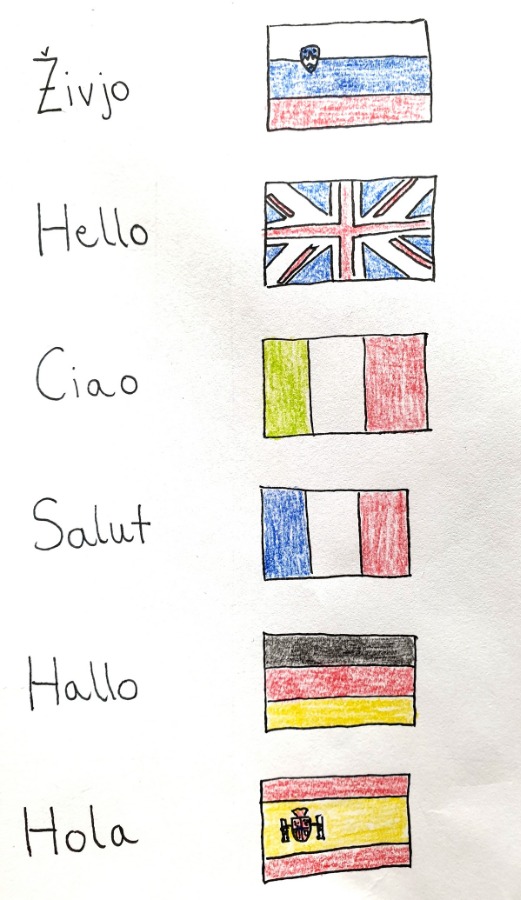 Živjo
Hello
Ciao
Salut
Hallo
Hola